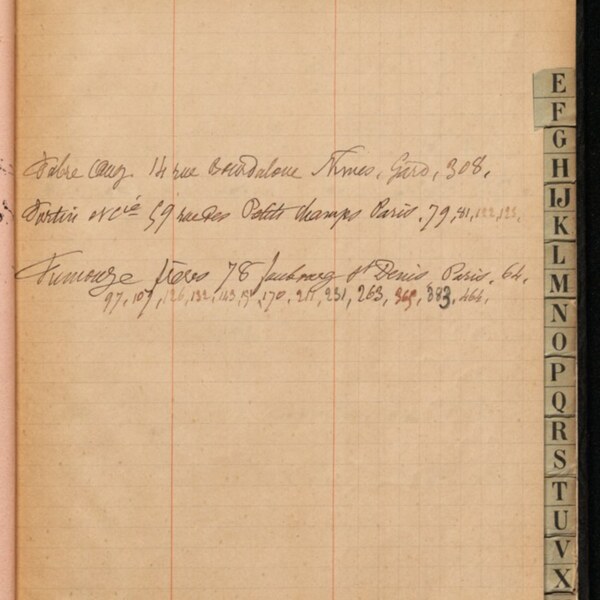 Fabre Aug. 14 rue Bourdaloue Nîmes, Gard, 308,
Fortin et Cie 59 rue des Petits champs Paris. 79, 81, 122, 125,
Fumouze frères 78 faubourg St Denis Paris. 64,
97, 107, 126, 132, 143, 170, 211, 231, 263, 365, 383, 466,
E
F
G
H
IJ
K
L
M
N
O
P
Q
R
S
T
U
V
X